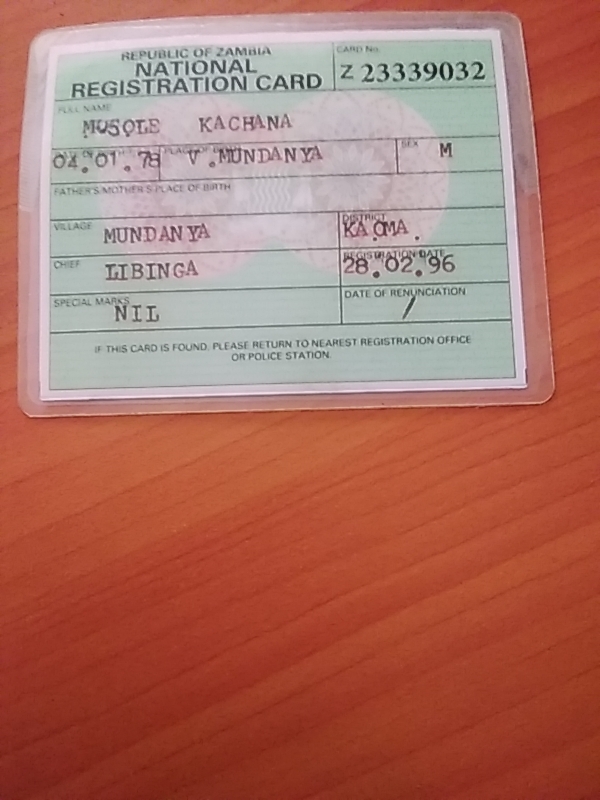 REPUBLIC OF ZAMBIA
NATIONAL
REGISTRATION CARD
CARD No.
Z 23339032
FULL NAME
MUSOLE KACHANA
04.01.78
PLACE OF BIRTH
V.MUNDANYA
SEX
M
FATHER'S/MOTHER'S PLACE OF BIRTH
VILLAGE
MUNDANYA
DISTRICT
KAOMA.
CHIEF
LIBINGA
REGISTRATION DATE
28.02.96
SPECIAL MARKS
NIL
DATE OF RENUNCIATION
/
IF THIS CARD IS FOUND, PLEASE RETURN TO NEAREST REGISTRATION OFFICE
OR POLICE STATION.